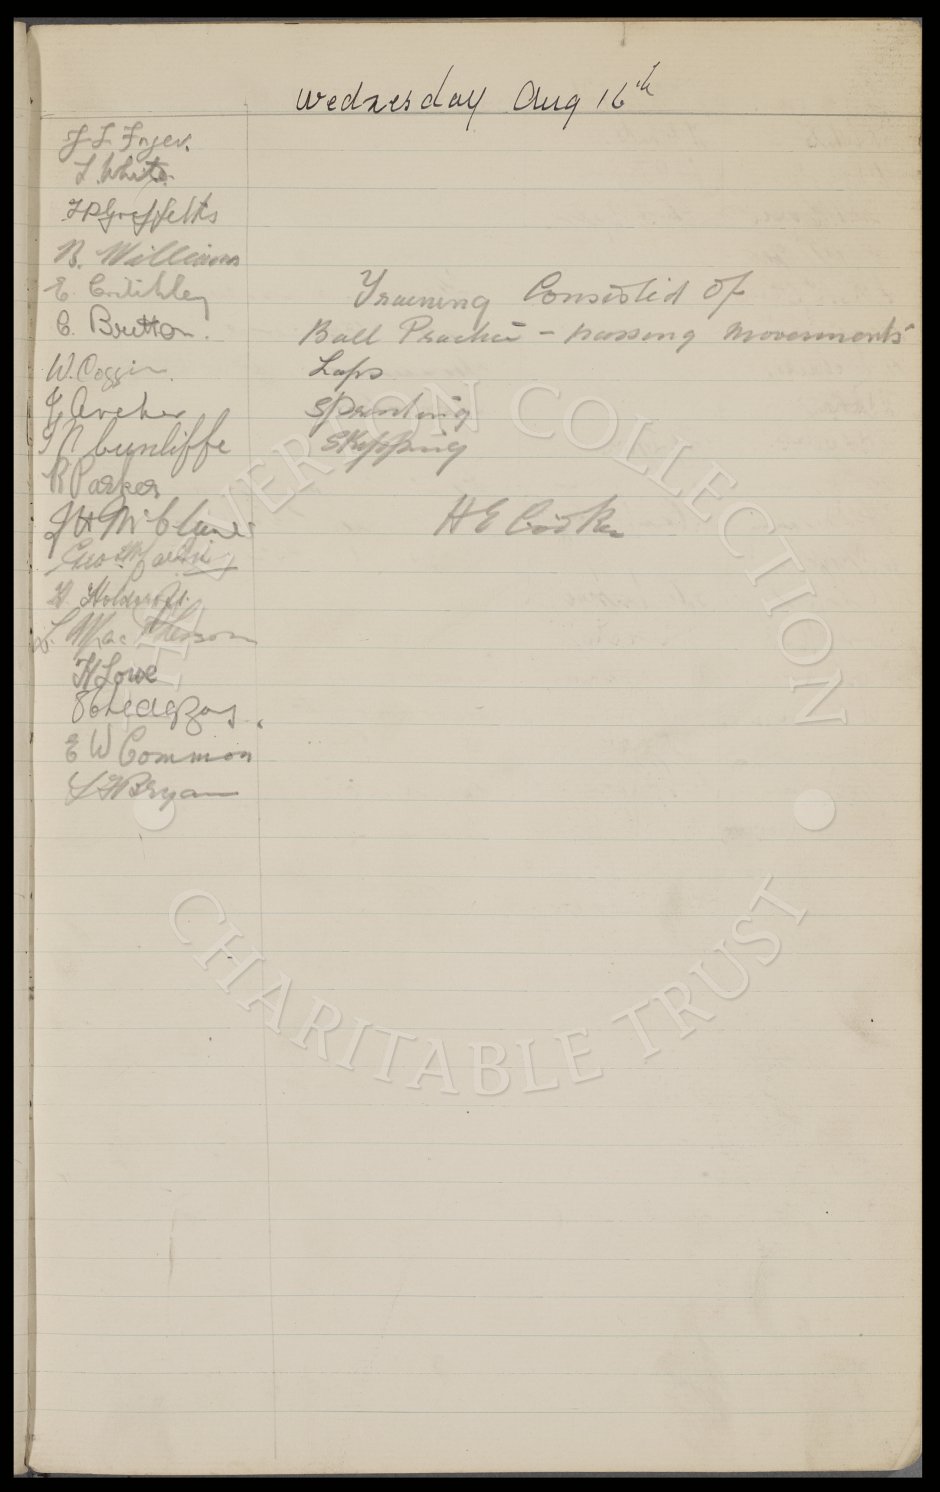 Wednesday Aug 16th
J L Fryer.
T. White.
T P Griffiths
R. Williams
E. Critchley
C. Britton.
W. Coggin.
J Archer
J N Cunliffe
R Parker
J H McClure
Geo Martin
H Holdcroft
L MacPherson
H Lowe
E W Common
L F Bryan
Training Consisted of
Ball Practice - passing movements
Laps
Sprinting
Skipping
H E Cooke
THE EVERTON COLLECTION
CHARITABLE TRUST